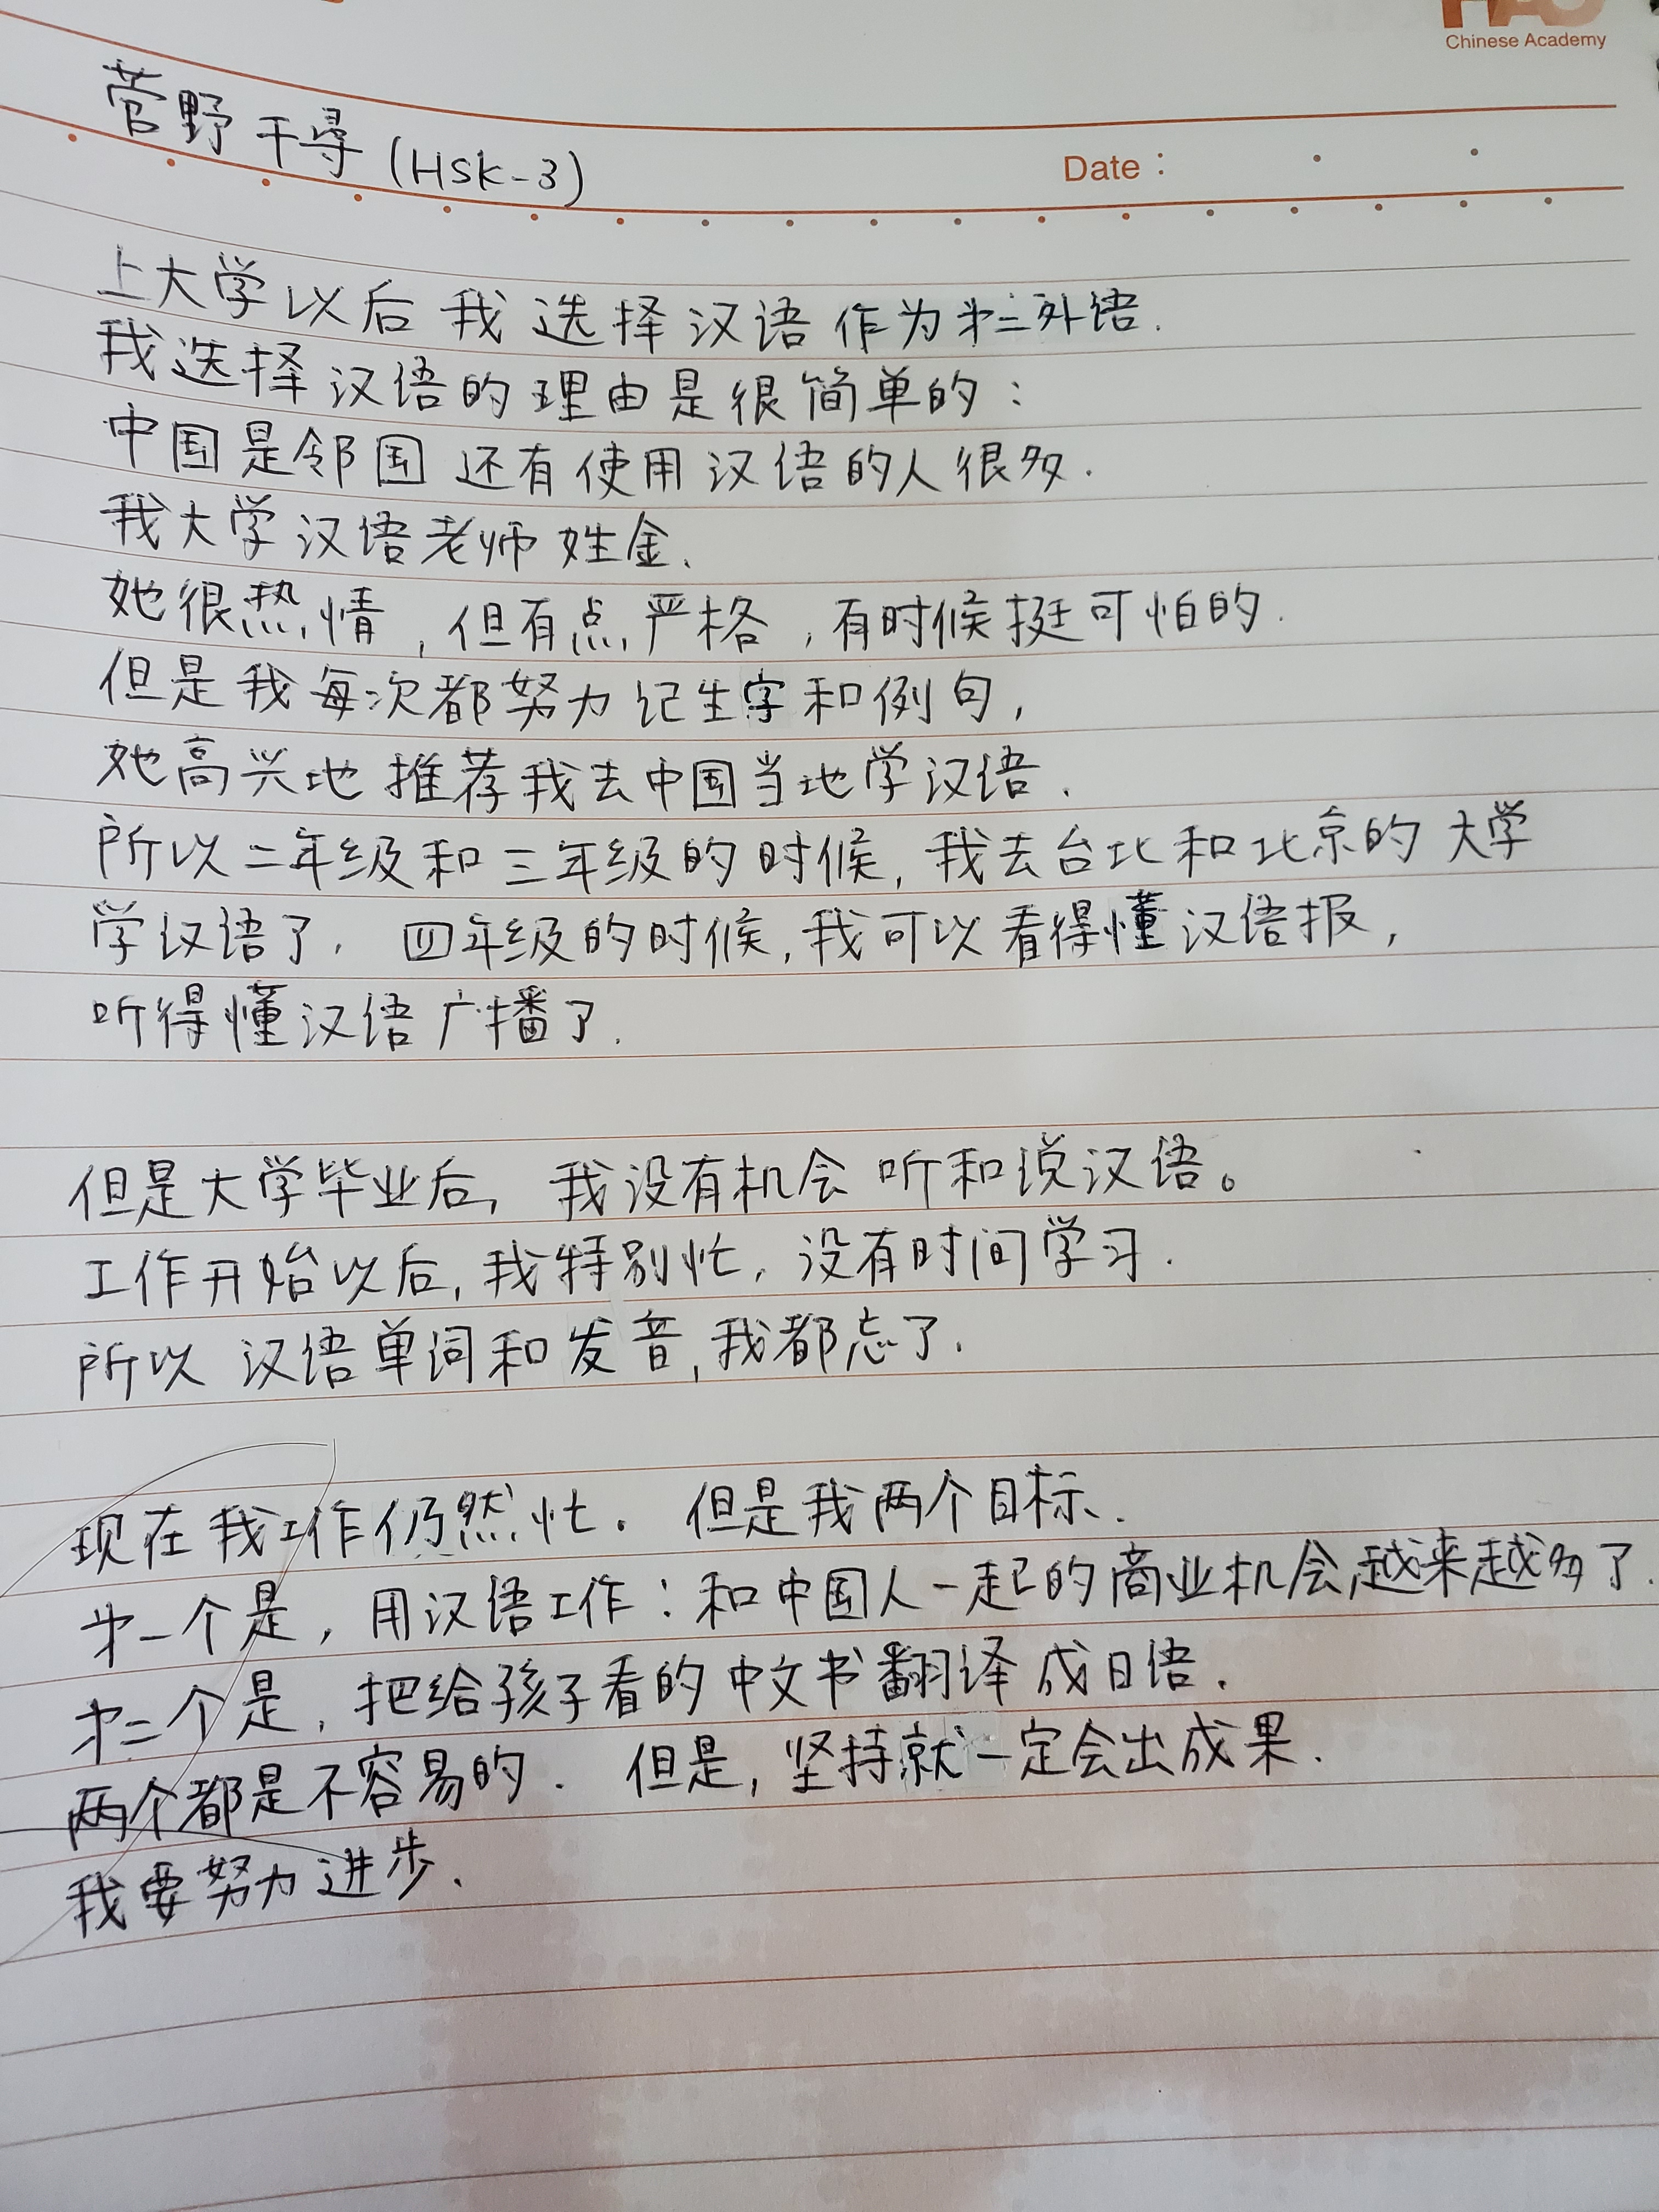 HAO
Chinese Academy
菅野千尋 (HSK-3)
Date :
上大学以后我选择汉语作为第二外语.
我选择汉语的理由是很简单的:
中国是邻国 还有使用汉语的人很多.
我大学汉语老师姓金.
她很热情, 但有点严格, 有时候挺可怕的.
但是我每次都努力记生字和例句,
她高兴地推荐我去中国当地学汉语.
所以二年级和三年级的时候, 我去台北和北京的大学
学汉语了. 四年级的时候, 我可以看得懂汉语报,
听得懂汉语广播了.
但是大学毕业后, 我没有机会听和说汉语。
工作开始以后, 我特别忙, 没有时间学习.
所以 汉语单词和发音, 我都忘了.
现在我工作仍然忙. 但是我两个目标.
第一个是, 用汉语工作: 和中国人一起的商业机会, 越来越多了.
第二个是, 把给孩子看的中文书翻译成日语.
两个都是不容易的. 但是, 坚持就一定会出成果.
我要努力进步.